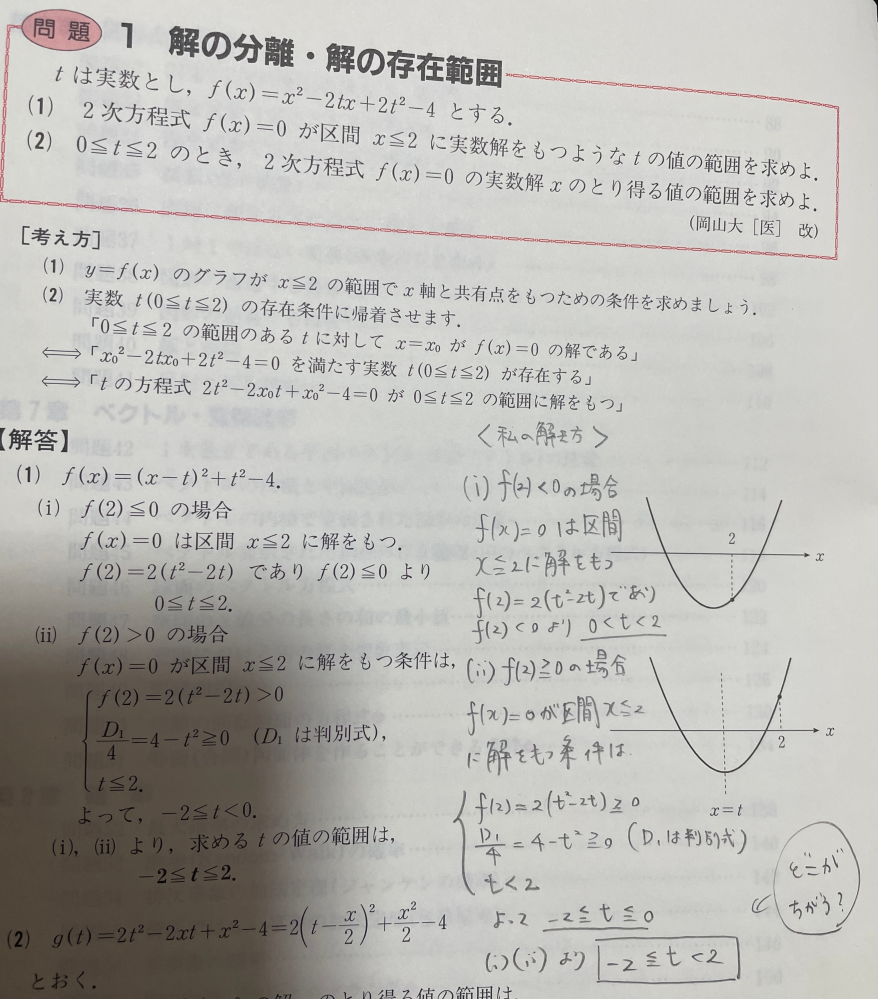 問題 1 解の分離・解の存在範囲
t は実数とし，f(x)=x²−2tx+2t²−4 とする．
(1) 2次方程式 f(x)=0 が区間 x≦2 に実数解をもつような t の値の範囲を求めよ．
(2) 0≦t≦2 のとき，2次方程式 f(x)=0 の実数解 x のとり得る値の範囲を求めよ．
(岡山大［医］ 改)
［考え方］
(1) y=f(x) のグラフが x≦2 の範囲で x 軸と共有点をもつための条件を求めましょう．
(2) 実数 t(0≦t≦2) の存在条件に帰着させます．
「0≦t≦2 の範囲のある t に対して x=x₀ が f(x)=0 の解である」
⟺「x₀²−2tx₀+2t²−4=0 を満たす実数 t(0≦t≦2) が存在する」
⟺「t の方程式 2t²−2x₀t+x₀²−4=0 が 0≦t≦2 の範囲に解をもつ」
【解答】
(1) f(x)=(x−t)²+t²−4．
(i) f(2)≦0 の場合
f(x)=0 は区間 x≦2 に解をもつ．
f(2)=2(t²−2t) であり f(2)≦0 より
0≦t≦2．
(ii) f(2)>0 の場合
f(x)=0 が区間 x≦2 に解をもつ条件は，
f(2)=2(t²−2t)>0
D₁/4=4−t²≧0 (D₁ は判別式)，
t≦2．
よって，−2≦t<0．
(i)，(ii) より，求める t の値の範囲は，
−2≦t≦2．
(2) g(t)=2t²−2xt+x²−4=2(t−x/2)²+x²/2−4
とおく．
＜私の解き方＞
(i) f(2)<0の場合
f(x)=0は区間
x≦2に解をもつ
f(2)=2(t²−2t)であり
f(2)<0より 0<t<2
(ii) f(2)≧0の場合
f(x)=0が区間x≦2
に解をもつ条件は
f(2)=2(t²−2t)≧0
D₁/4=4−t²≧0 (D₁は判別式)
t<2
よって −2≦t≦0
(i)(ii)より −2≦t<2
どこが
ちがう？
2
x
2
x
x=t